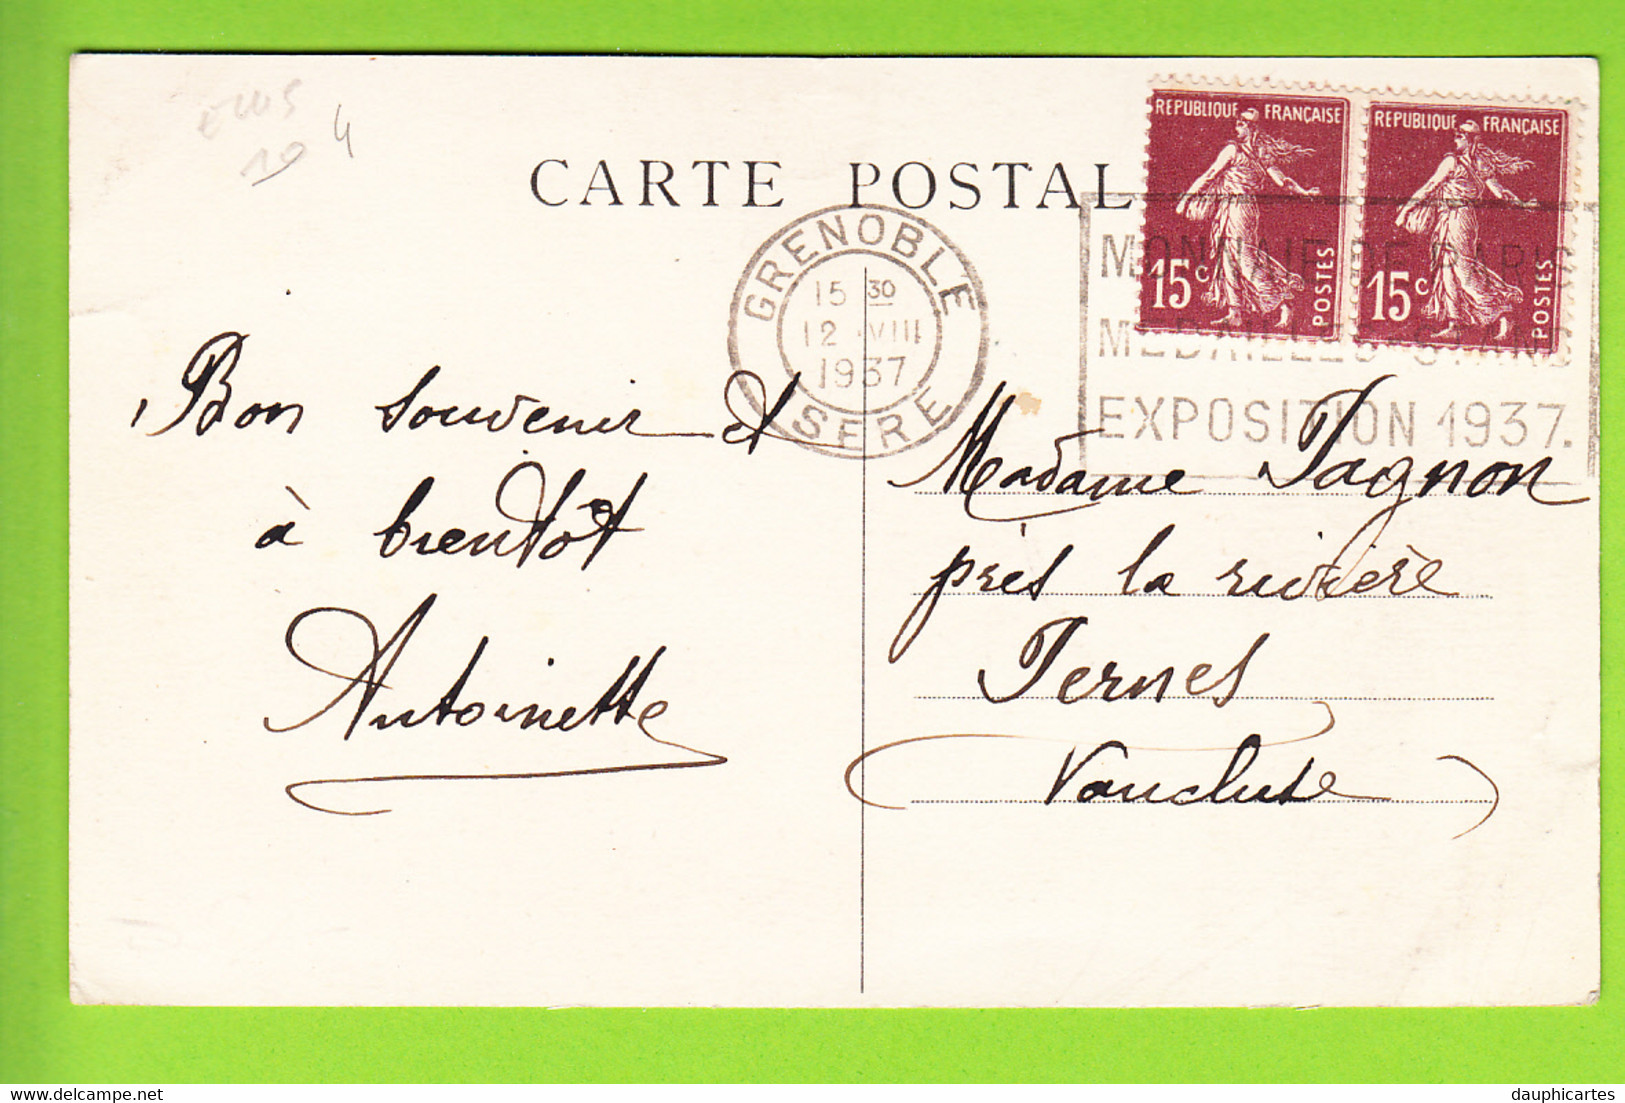 4
10
CARTE POSTAL
REPUBLIQUE FRANÇAISE
15c
POSTES
REPUBLIQUE FRANÇAISE
15c
POSTES
GRENOBLE
15 30
12 VIII
1937
ISERE
MONNAIE DE PARIS
MEDAILLES-STAND
EXPOSITION 1937.
Bon souvenir et
à bientôt
Antoinette
Madame Pagnon
près la rivière
Pernes
Vaucluse
delcampe.net
dauphicartes